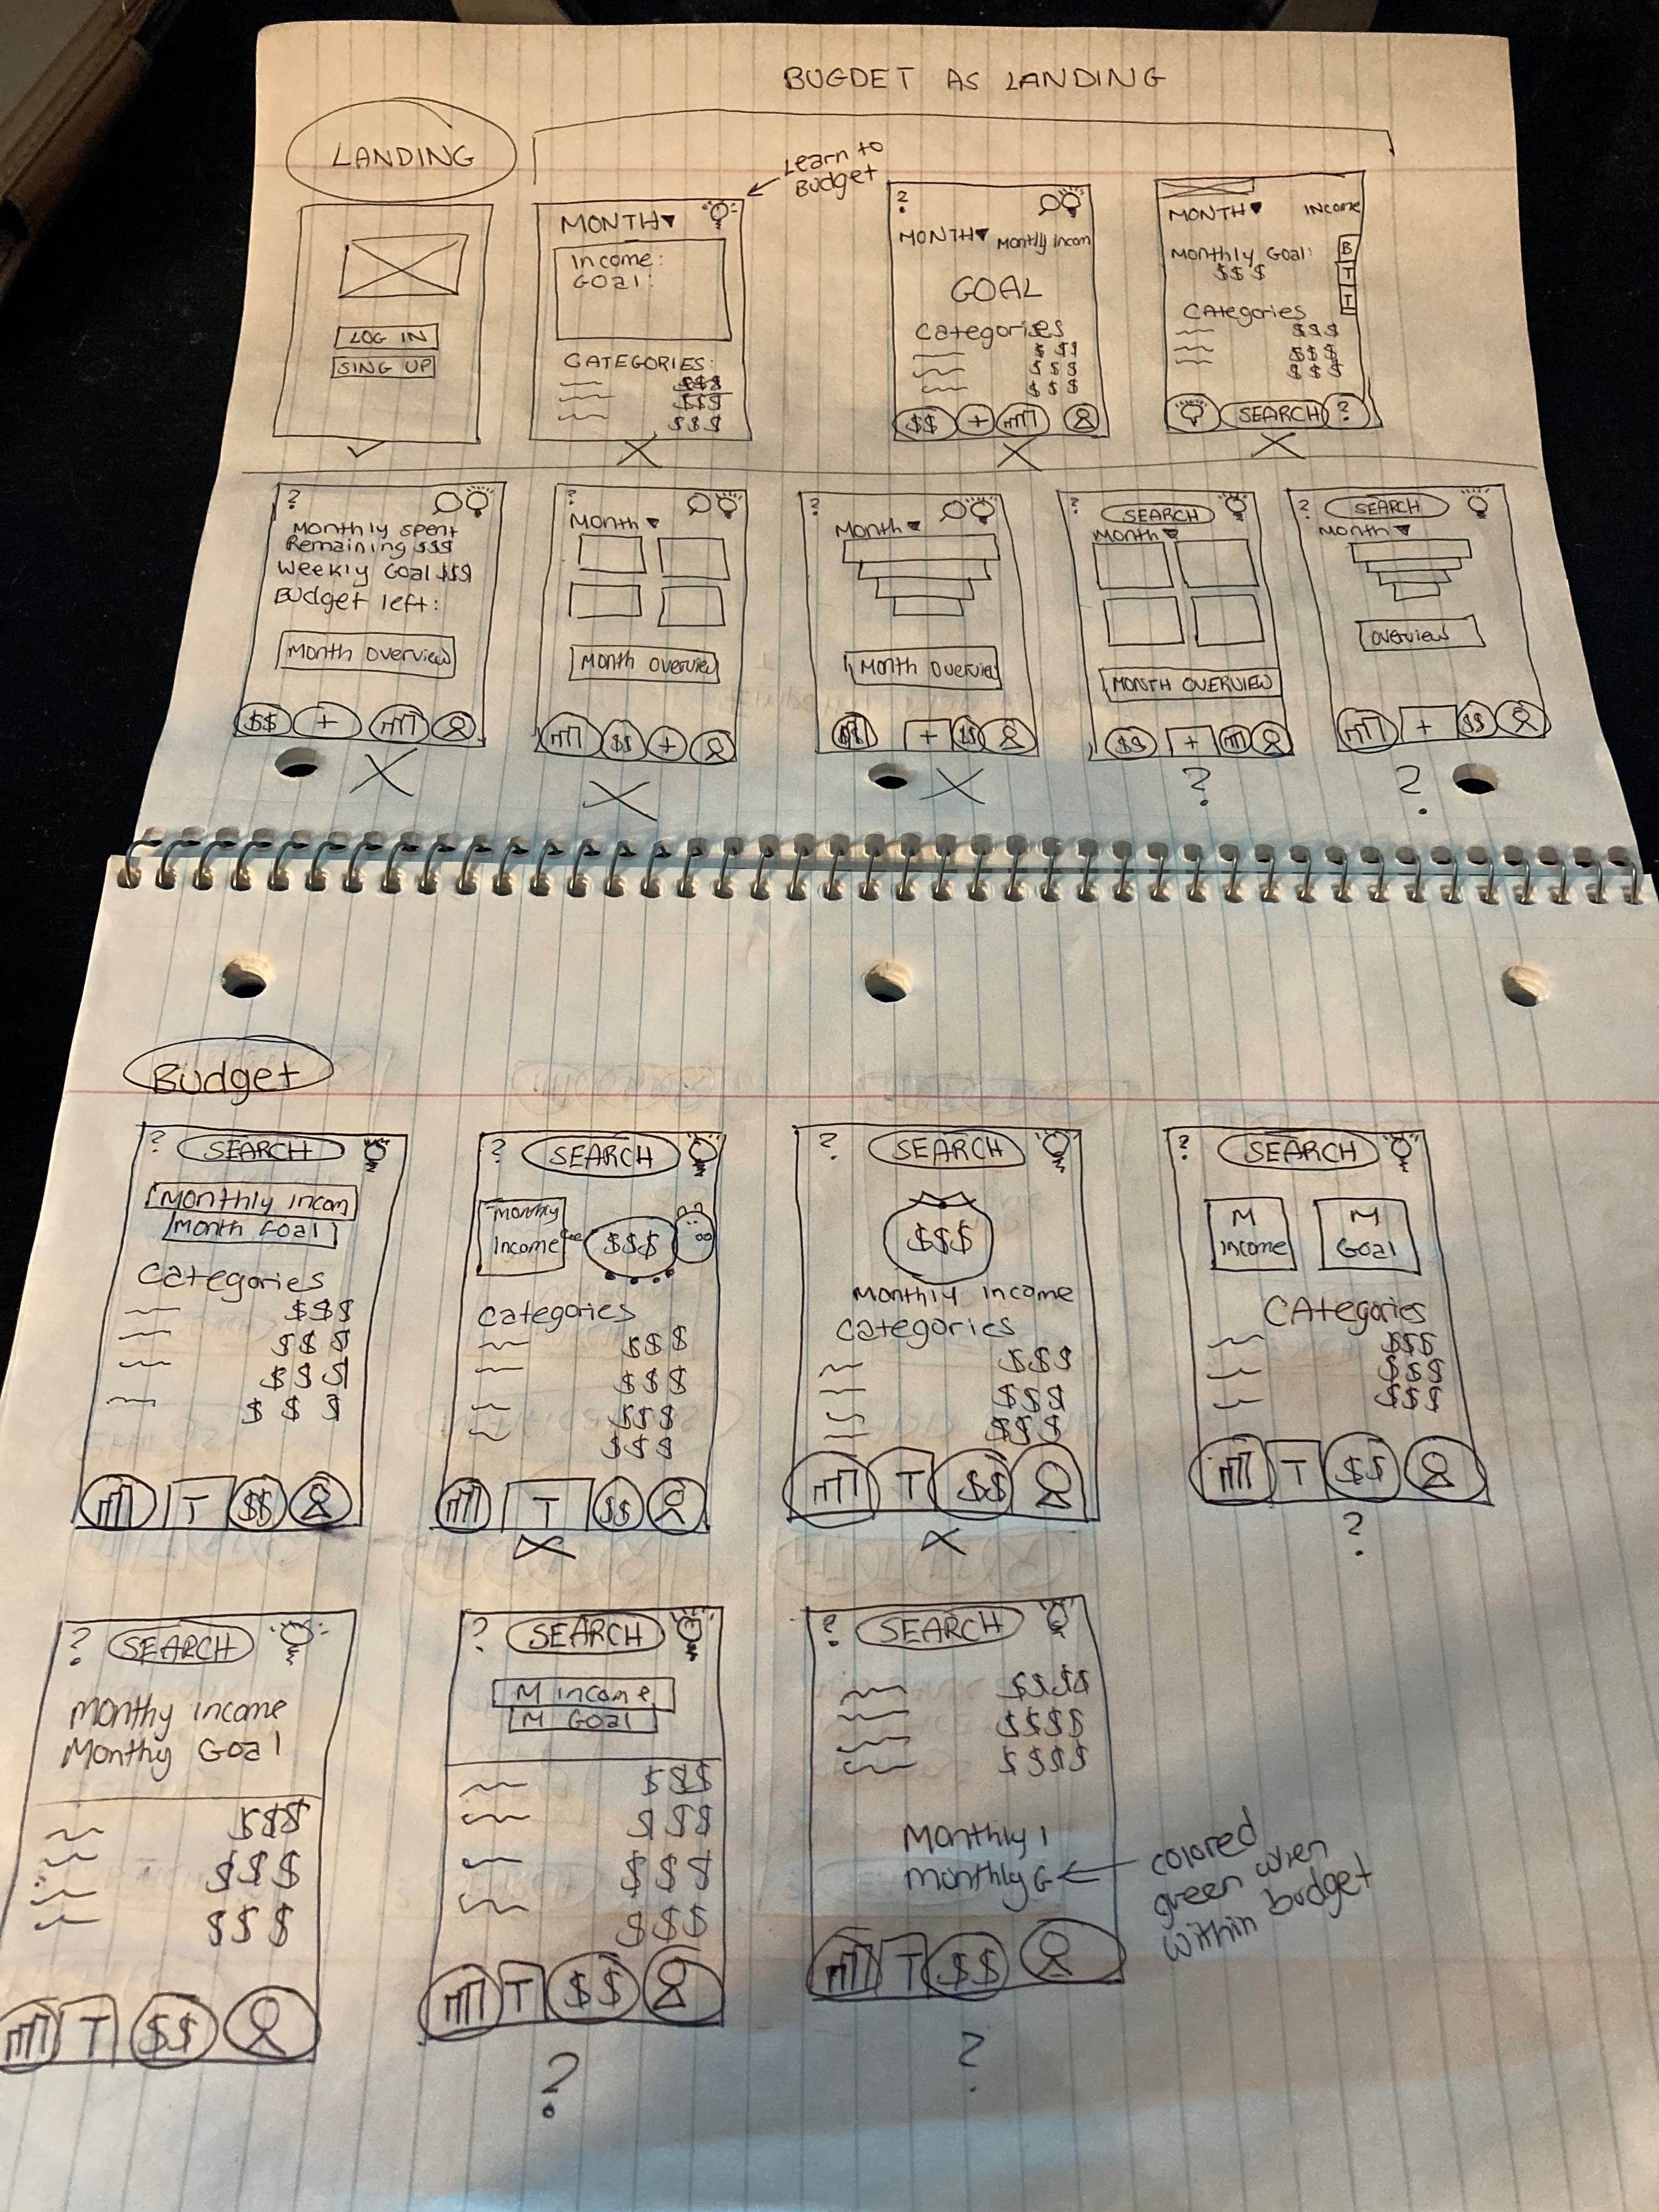 BUGDET AS LANDING
LANDING
Learn to
Budget
LOG IN
SING UP
MONTH
Income:
Goal:
CATEGORIES:
$$$
$$$
$$$
?
MONTH Monthly Incom
GOAL
Categories
$$$
$$$
$$$
$$ +
MONTH Income
Monthly Goal:
$$$
B
T
I
CAtegories
$$$
$$$
$$$
SEARCH ?
?
Monthly Spent
Remaining $$$
Weekly Goal $$$
Budget left:
Month Overview
$$ +
?
Month
Month Overview
$$ +
?
Month
Month Overview
+ $$
?
SEARCH
Month
MONTH OVERVIEW
$$ +
?
? SEARCH
Month
Overview
+ $$
?
Budget
? SEARCH
Monthly Incom
Month Goal
Categories
$$$
$$$
$$$
$$$
T $$
? SEARCH
Monthly
Income
$$$
Categories
$$$
$$$
$$$
$$$
T $$
? SEARCH
$$$
Monthly Income
Categories
$$$
$$$
$$$
T $$
? SEARCH
M
Income
M
Goal
CAtegories
$$$
$$$
$$$
T $$
?
? SEARCH
Monthy Income
Monthy Goal
$$$
$$$
$$$
T $$
? SEARCH
M Income
M Goal
$$$
$$$
$$$
$$$
T $$
?
? SEARCH
$$$$
$$$$
$$$$
Monthly I
Monthly G
T $$
?
colored
green when
within budget